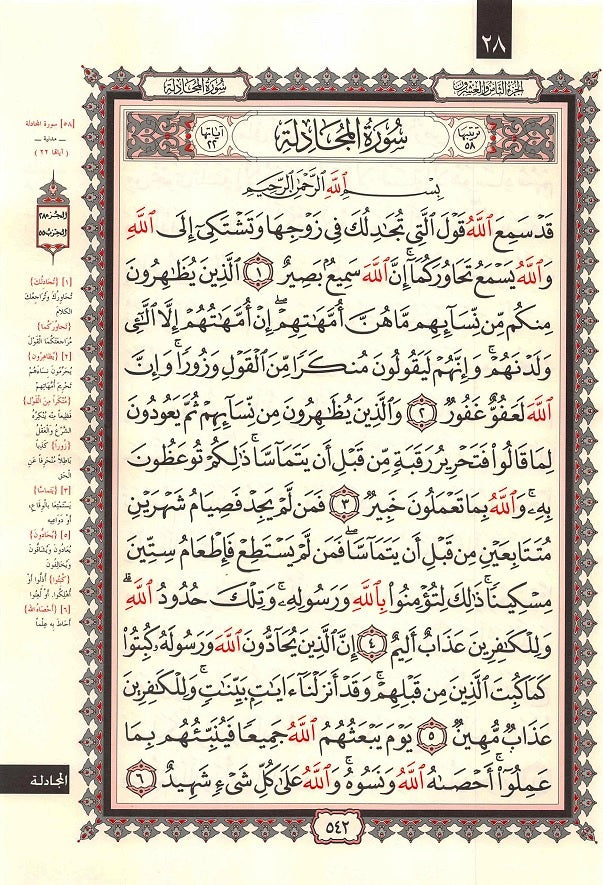 ٢٨
الجزء الثامن والعشرون
سورة المجادلة
ترتيبها ٥٨
سُورَةُ المُجَادلَةِ
آياتها ٢٢
بِسْمِ اللَّهِ الرَّحْمَٰنِ الرَّحِيمِ
قَدْ سَمِعَ اللَّهُ قَوْلَ الَّتِي تُجَادِلُكَ فِي زَوْجِهَا وَتَشْتَكِي إِلَى اللَّهِ
وَاللَّهُ يَسْمَعُ تَحَاوُرَكُمَا ۚ إِنَّ اللَّهَ سَمِيعٌ بَصِيرٌ ١ الَّذِينَ يُظَاهِرُونَ
مِنكُم مِّن نِّسَائِهِم مَّا هُنَّ أُمَّهَاتِهِمْ ۖ إِنْ أُمَّهَاتُهُمْ إِلَّا اللَّائِي
وَلَدْنَهُمْ ۚ وَإِنَّهُمْ لَيَقُولُونَ مُنكَرًا مِّنَ الْقَوْلِ وَزُورًا ۚ وَإِنَّ
اللَّهَ لَعَفُوٌّ غَفُورٌ ٢ وَالَّذِينَ يُظَاهِرُونَ مِن نِّسَائِهِمْ ثُمَّ يَعُودُونَ
لِمَا قَالُوا فَتَحْرِيرُ رَقَبَةٍ مِّن قَبْلِ أَن يَتَمَاسَّا ۚ ذَٰلِكُمْ تُوعَظُونَ
بِهِ ۚ وَاللَّهُ بِمَا تَعْمَلُونَ خَبِيرٌ ٣ فَمَن لَّمْ يَجِدْ فَصِيَامُ شَهْرَيْنِ
مُتَتَابِعَيْنِ مِن قَبْلِ أَن يَتَمَاسَّا ۖ فَمَن لَّمْ يَسْتَطِعْ فَإِطْعَامُ سِتِّينَ
مِسْكِينًا ۚ ذَٰلِكَ لِتُؤْمِنُوا بِاللَّهِ وَرَسُولِهِ ۚ وَتِلْكَ حُدُودُ اللَّهِ ۗ
وَلِلْكَافِرِينَ عَذَابٌ أَلِيمٌ ٤ إِنَّ الَّذِينَ يُحَادُّونَ اللَّهَ وَرَسُولَهُ كُبِتُوا
كَمَا كُبِتَ الَّذِينَ مِن قَبْلِهِمْ ۚ وَقَدْ أَنزَلْنَا آيَاتٍ بَيِّنَاتٍ ۚ وَلِلْكَافِرِينَ
عَذَابٌ مُّهِينٌ ٥ يَوْمَ يَبْعَثُهُمُ اللَّهُ جَمِيعًا فَيُنَبِّئُهُم بِمَا
عَمِلُوا ۚ أَحْصَاهُ اللَّهُ وَنَسُوهُ ۚ وَاللَّهُ عَلَىٰ كُلِّ شَيْءٍ شَهِيدٌ ٦
٥٤٢
٥٨| سورة المجادلة
ـ مدنية ـ
( آياتها ٢٢ )
الجزء ٢٨
الحزب ٥٥
١| {تُجَادِلُكَ}
تُحَاوِرُكَ وَتُرَاجِعُكَ
الكَلَامَ
{تَحَاوُرَكُمَا}
مُرَاجَعَتَكُمَا القَوْلَ
٢| {يُظَاهِرُونَ}
يُحَرِّمُونَ نِسَاءَهُمْ
تَحْرِيمَ أُمَّهَاتِهِمْ
{مُنْكَراً مِنَ القَوْلِ}
فَظِيعاً مِنْهُ يُنْكِرُهُ
الشَّرْعُ وَالعَقْلُ
{زُوراً} كَذِباً
بَاطِلاً مُنْحَرِفاً عَنِ
الحَقِّ
٣| {يَتَمَاسَّا}
يَسْتَمْتِعَا بِالوِقَاعِ،
أَوْ دَوَاعِيهِ
٥| {يُحَادُّونَ}
يُعَادُونَ وَيُشَاقُّونَ
وَيُخَالِفُونَ
{كُبِتُوا} أُذِلُّوا أَوْ
أُهْلِكُوا، أَوْ لُعِنُوا
٦| {أَحْصَاهُ اللهُ}
أَحَاطَ بِهِ عِلْماً
المجادلة